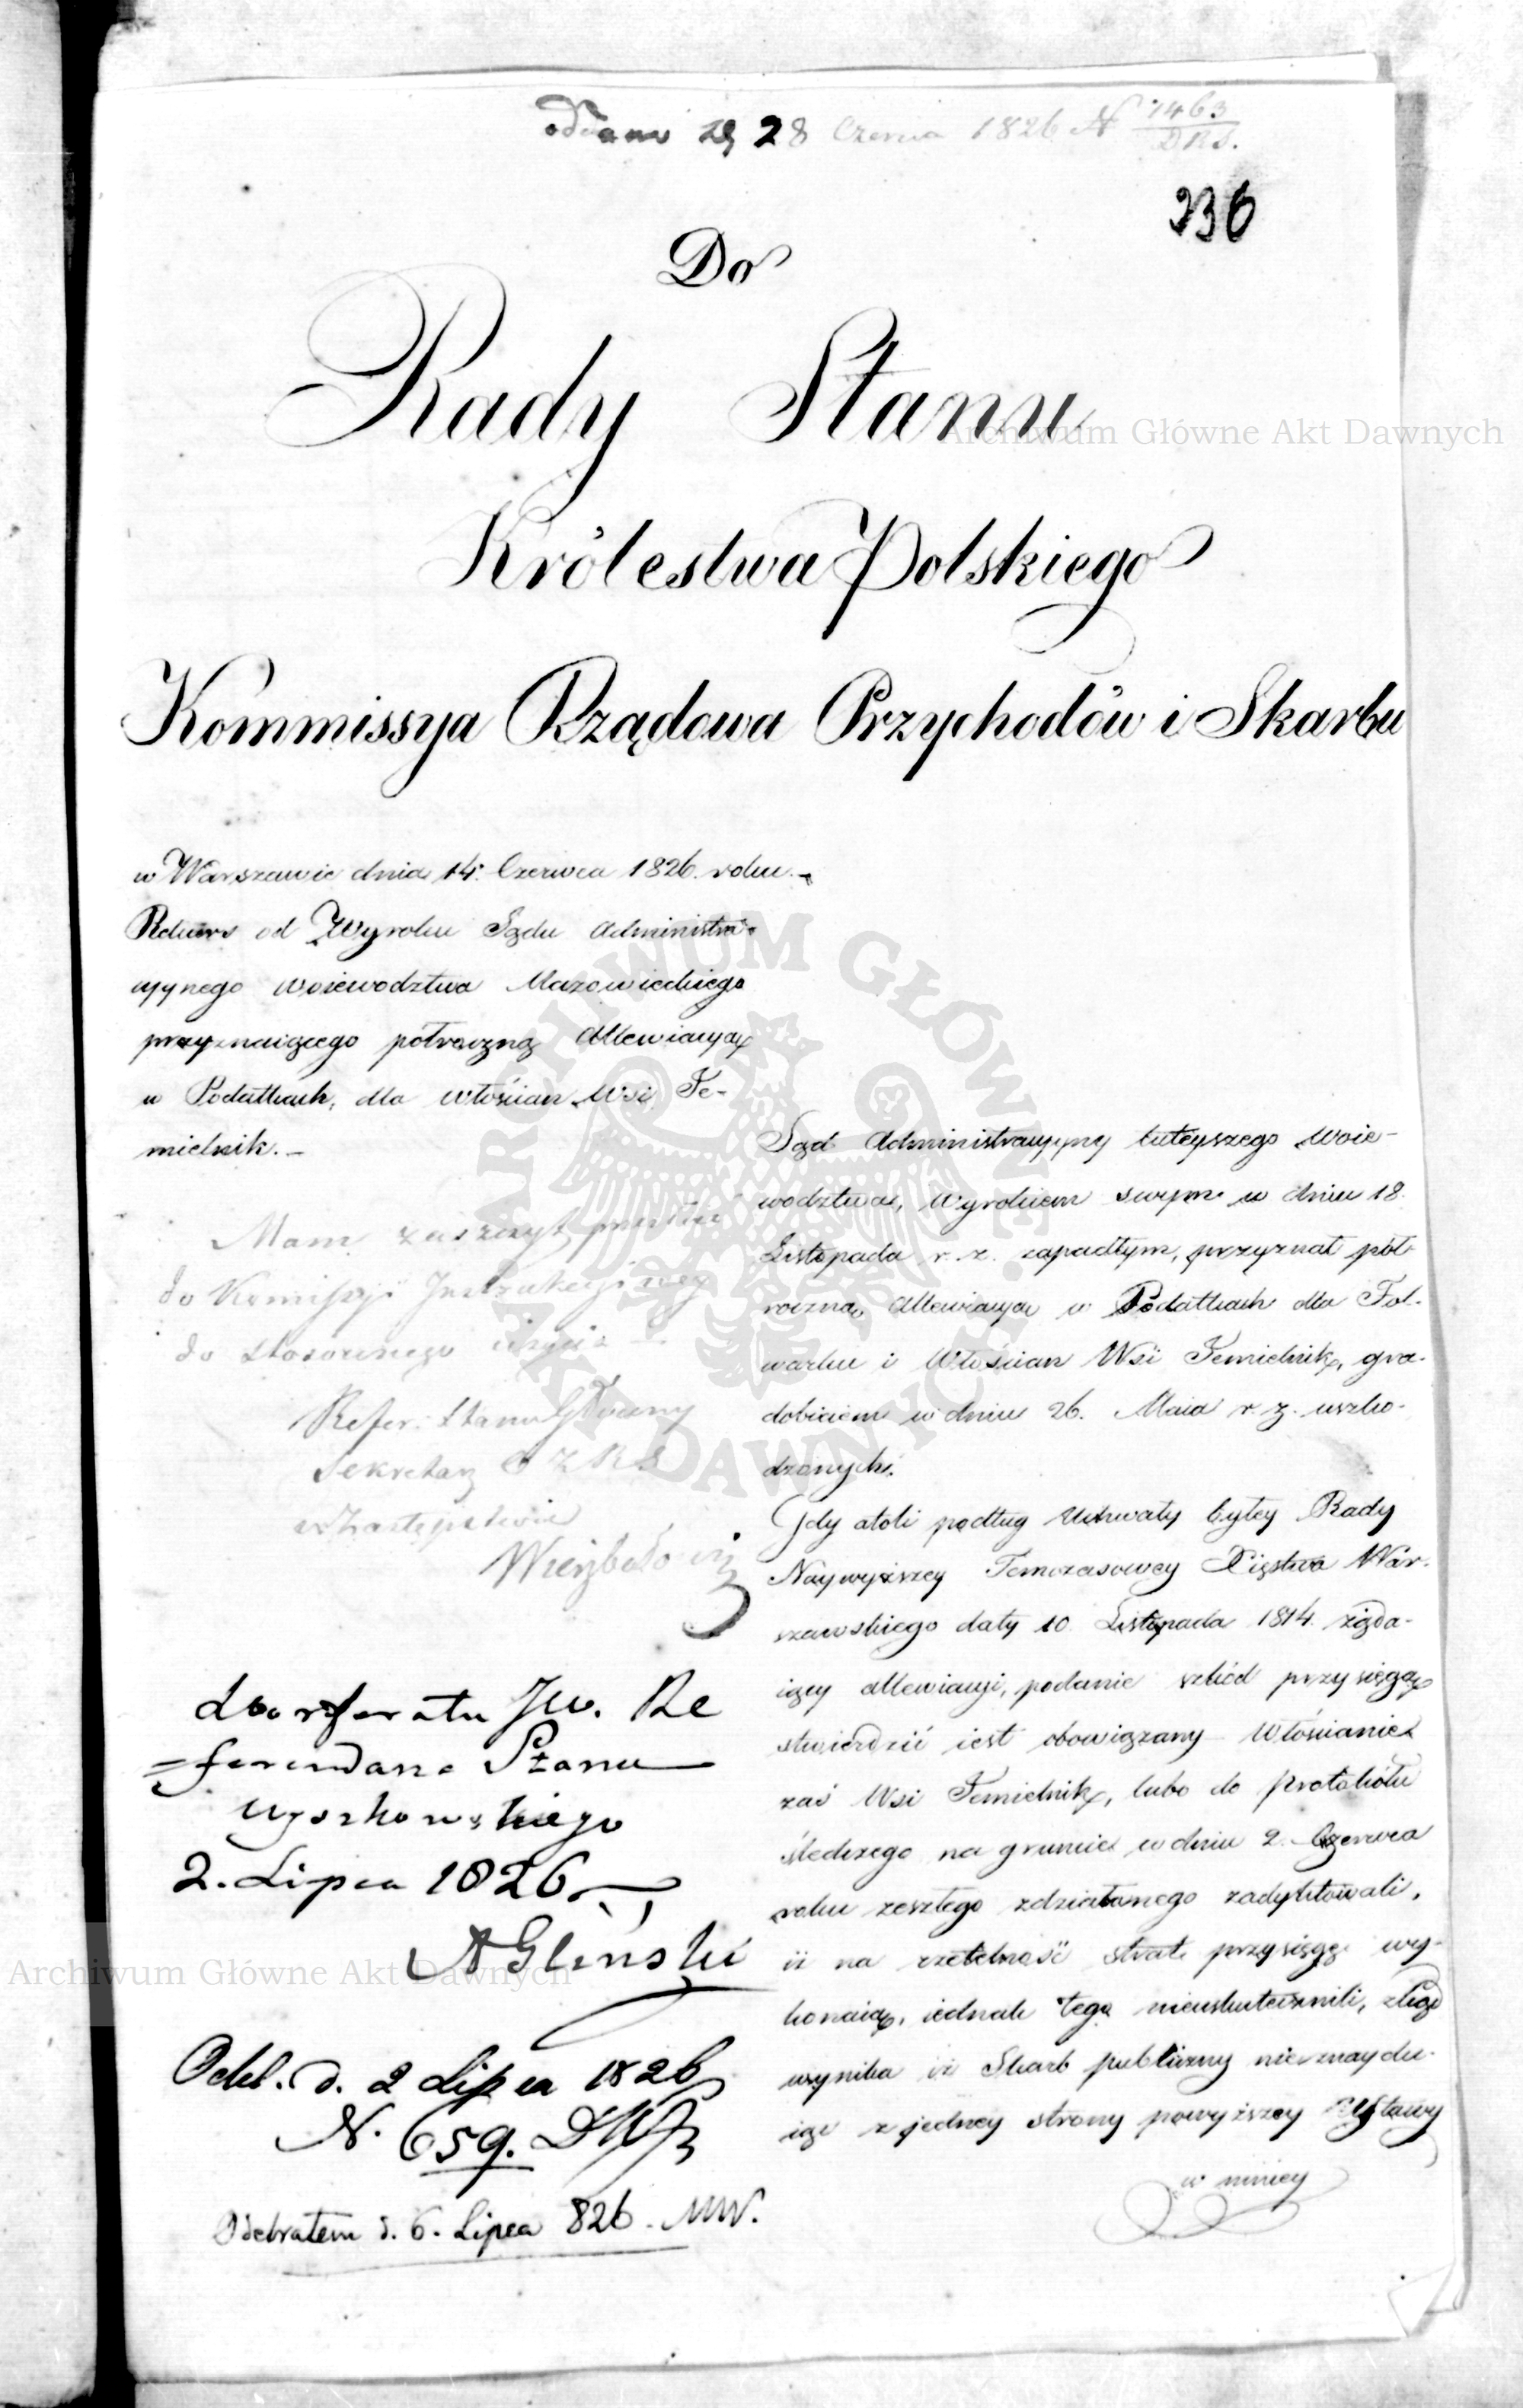 oddano d 28 Czerwca 1826 N 7463
D.R.S.
236
Do
Rady Stanu
Królestwa Polskiego
Kommissya Rządowa Przychodów i Skarbu
w Warszawie dnia 14. Czerwca 1826. roku. -
Rekurs od Wyroku Sądu Administra-
cyjnego Woiewodztwa Mazowieckiego
przyznaiącego półroczną allewiacyą
w Podatkach, dla Włościan Wsi Te-
mielnik. -
Mam zaszczyt przesłać
do Komissyi Instrukcyiney
do stosownego użycia
Refer. Stanu Główny
Sekretarz
w Zastępstwie
Wierzbołowicz
do referatu JW. Re
=ferendarza Stanu
Wyszkowskiego
2. Lipca 1826
AGliński
Odeb. d. 2 Lipca 1826
N. 659.
Odebrałem d. 6. Lipca 826. MW.
Sąd Administracyjny tuteyszego Woie-
wodztwa, Wyrokiem swym w dniu 18.
Listopada r. z. zapadłym, przyznał pół-
roczną allewiacyą w Podatkach dla Fol-
warku i Włościan Wsi Temielnik, gra-
dobiciem w dniu 26. Maia r. z. uszko-
dzonych.
Gdy atoli podług Uchwały byłey Rady
Naywyższey Tymczasowey Xięstwa War-
szawskiego daty 10 Listopada 1814. żąda-
iący allewiacyi, podanie szkód przysięgą
stwierdzić iest obowiązany Włościanie
zaś Wsi Temielnik, lubo do protokółu
śledczego na gruncie w dniu 2. Czerwca
roku zeszłego zdziałanego zadyktowali,
iż na rzetelność strat przysięgę wy-
konaią, iednak tego nieuskutecznili, ztąd
wynika iż Skarb publiczny nieznaydu-
iąc z jedney strony powyższey Ustawy
w niniey
Archiwum Główne Akt Dawnych
Archiwum Główne Akt Dawnych
ARCHIWUM GŁÓWNE AKT DAWNYCH